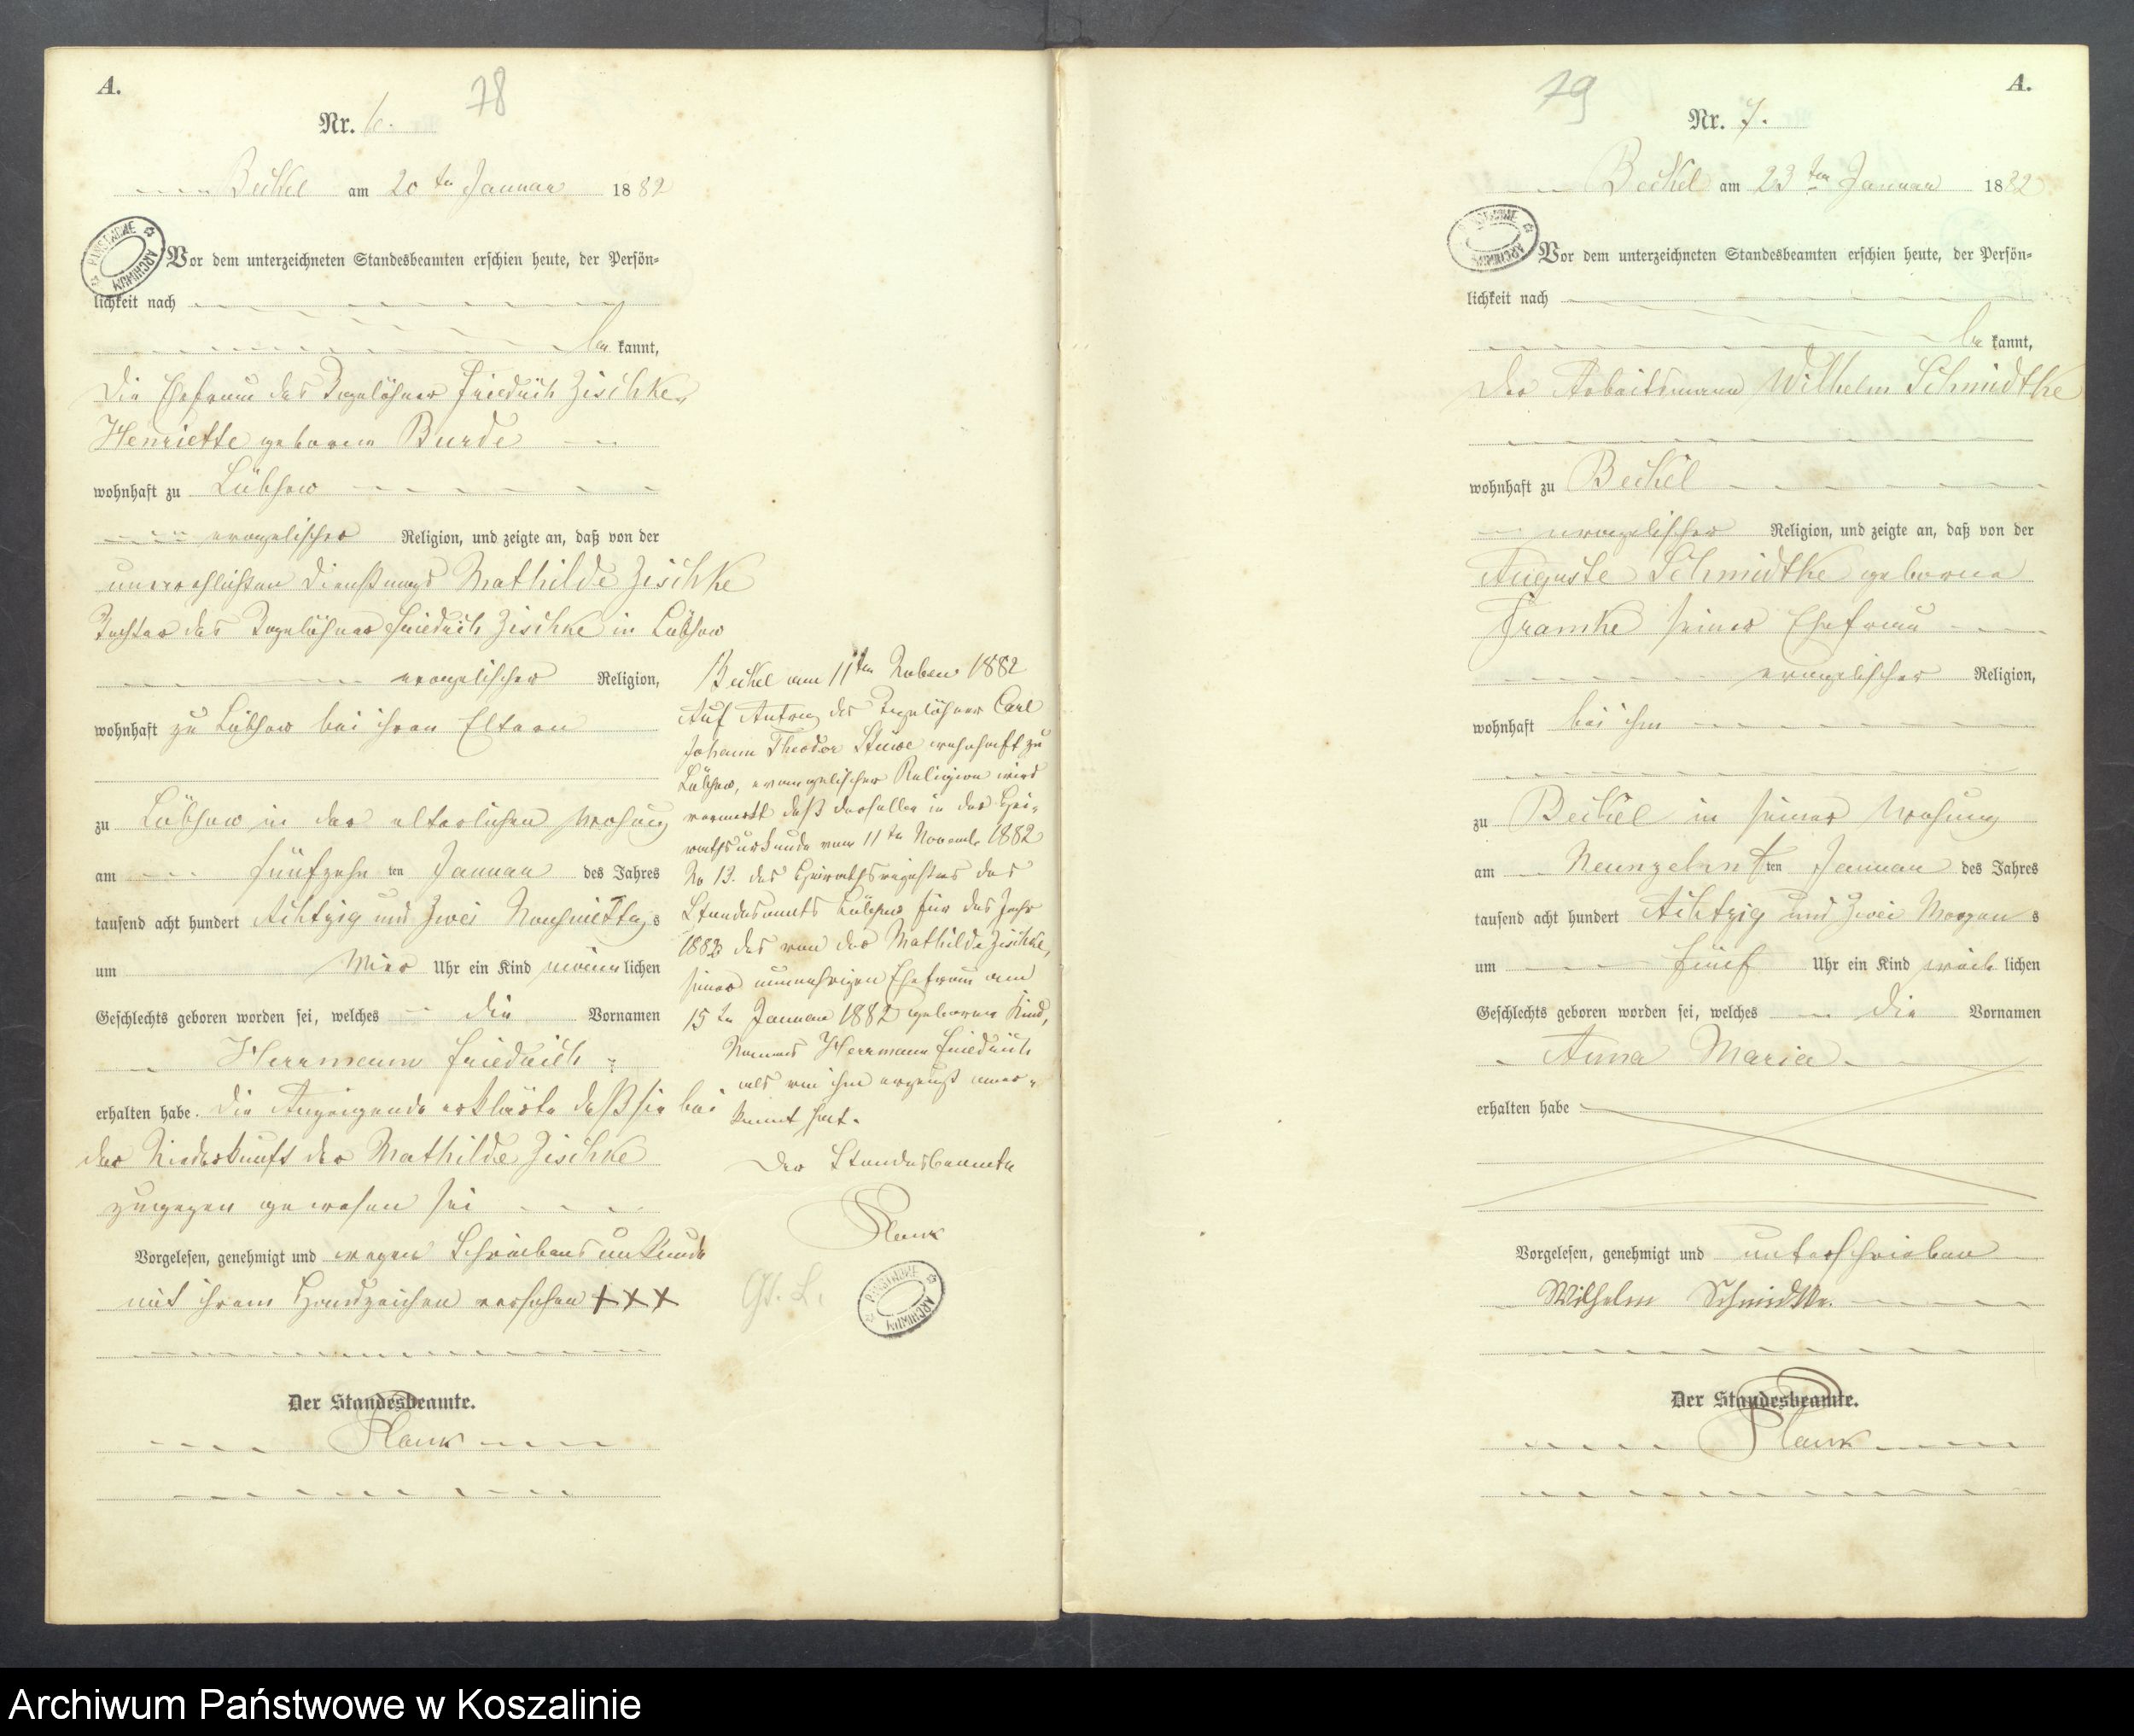 A.
78
Nr. 6.
Beckel am 20 ten Januar 1882
Vor dem unterzeichneten Standesbeamten erschien heute, der Persön-
lichkeit nach
be kannt,
Die Ehefrau des Tagelöhner Friedrich Zischke,
Henriette geborene Burde
wohnhaft zu Lübzow
evangelischer Religion, und zeigte an, daß von der
unverehlichten Dienstmagd Mathilde Zischke
Tochter des Tagelöhner Friedrich Zischke in Lübzow
evangelischer Religion,
wohnhaft zu Lübzow bei ihren Eltern
zu Lübzow in der elterlichen Wohnung
am fünfzehn ten Januar des Jahres
tausend acht hundert Achtzig und Zwei Nachmittags
um Vier Uhr ein Kind männlichen
Geschlechts geboren worden sei, welches die Vornamen
Herrmann Friedrich
erhalten habe. Die Anzeigende erklärte daß sie bei
der Niederkunft der Mathilde Zischke
zugegen gewesen sei
Vorgelesen, genehmigt und wegen Schreibensunkunde
mit ihrem Handzeichen versehen +++
Der Standesbeamte.
Beckel am 11ten 1882
Auf Antrag des Tagelöhner Carl
Johann Theodor Stüwe wohnhaft zu
Lübzow, evangelischer Religion wird
vermerkt daß derselbe in der Hei-
rathsurkunde vom 11 ten Novemb. 1882
No 13. des Heirathsregisters des
Standesamts Lübzow für das Jahr
1882 das von der Mathilde Zischke,
seiner nunmehrigen Ehefrau am
15 ten Januar 1882 geborene Kind,
Namens Herrmann Friedrich
als von ihm erzeugt aner-
kannt hat.
Der Standesbeamte
PAŃSTWOWE ARCHIWUM
A.
79
Nr. 7.
Beckel am 23 ten Januar 1882
Vor dem unterzeichneten Standesbeamten erschien heute, der Persön-
lichkeit nach
be kannt,
Der Arbeitsmann Wilhelm Schmidtke
wohnhaft zu Beckel
evangelischer Religion, und zeigte an, daß von der
Auguste Schmidtke geborene
Framke seiner Ehefrau
evangelischer Religion,
wohnhaft bei ihm
zu Beckel in seiner Wohnung
am Neunzehn ten Januar des Jahres
tausend acht hundert Achtzig und Zwei Morgens
um fünf Uhr ein Kind weiblichen
Geschlechts geboren worden sei, welches die Vornamen
Anna Maria
erhalten habe
Vorgelesen, genehmigt und unterschrieben
Wilhelm Schmidtke.
Der Standesbeamte.
Archiwum Państwowe w Koszalinie